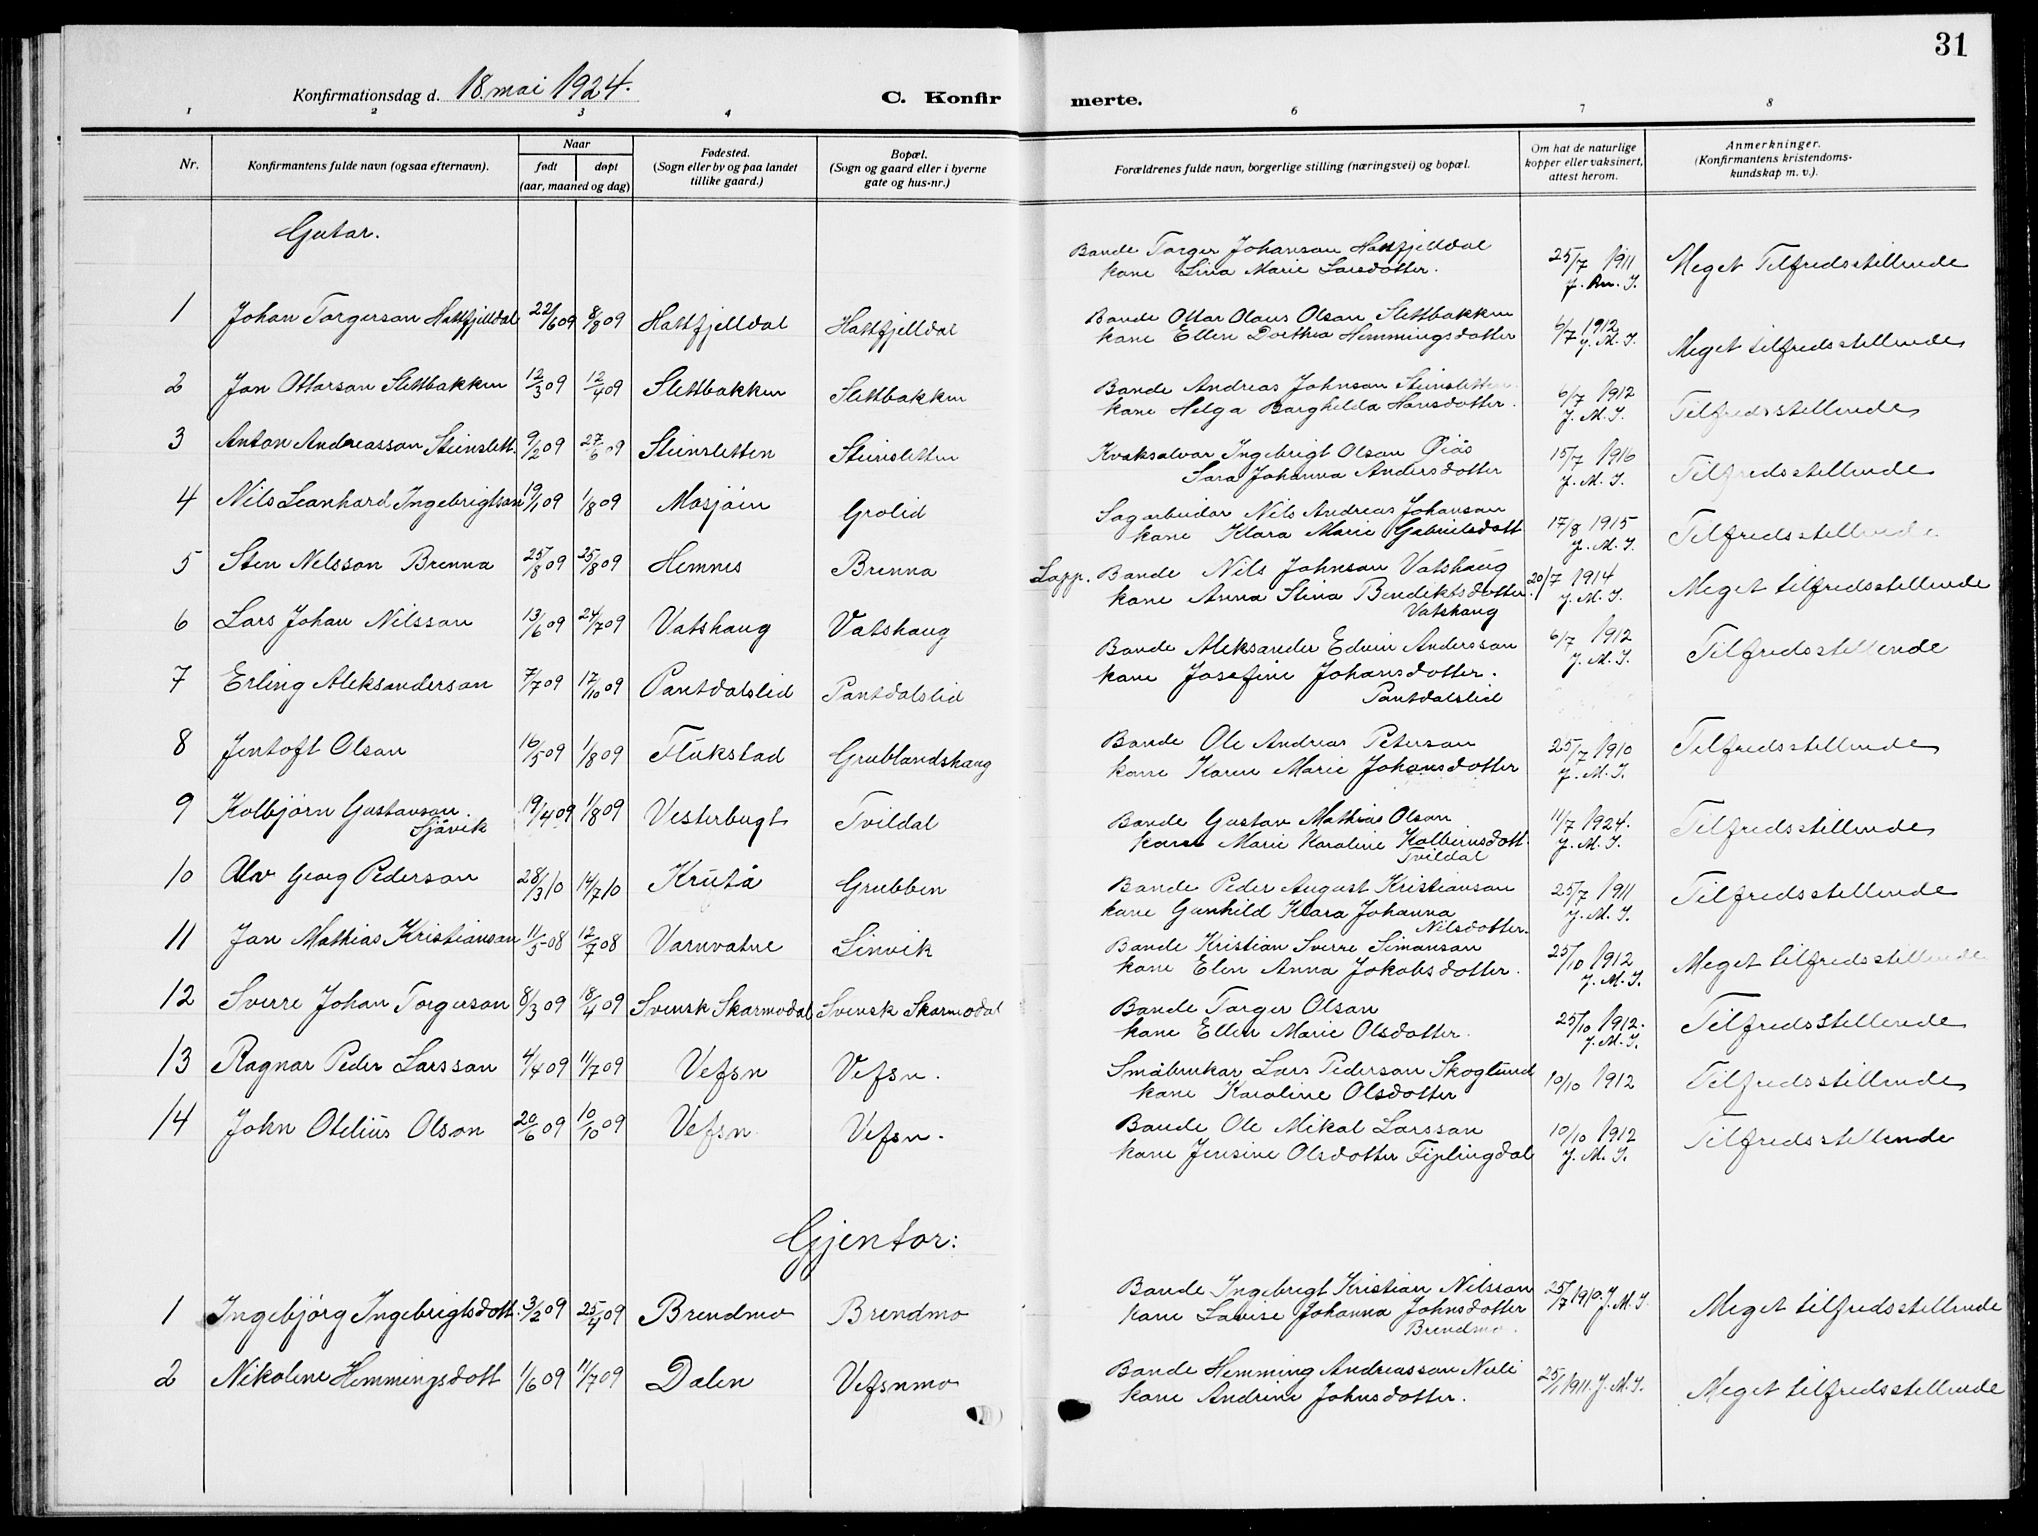 31
Konfirmationsdag d. 18. mai 1924.
C. Konfirmerte.
1 2 3 4 6 7 8
Nr.
Konfirmantens fulde navn (ogsaa efternavn).
Naar
født
døpt
(aar, maaned og dag)
Fødested.
(Sogn eller by og paa landet
tillike gaard.)
Bopæl.
(Sogn og gaard eller i byerne
gate og hus-nr.)
Forældrenes fulde navn, borgerlige stilling (næringsvei) og bopæl.
Om hat de naturlige
kopper eller vaksinert,
attest herom.
Anmerkninger.
(Konfirmantens kristendoms-
kundskap m. v.).
Gutar.
1 Johan Torgerson Hattfjelldal 22/6 09 8/8 09 Hattfjelldal Hattfjelldal
Bonde Torger Johanson Hattfjelldal
kone Lina Marie Larsdotter.
25/7 1911
Meget Tilfredsstillende
2 Jon Ottarson Slettbakken 12/3 09 12/4 09 Slettbakken Slettbakken
Bonde Ottar Olaus Olson Slettbakken
kone Ellen Dorthea Hemmingsdotter
6/7 1912
J. M. I.
Meget tilfredsstillende
3 Anton Andreasson Steinslett. 9/2 09 27/6 09 Steinsletten Steinsletten
Bonde Andreas Johnson Steinsletten
kone Helga Borghilda Hansdotter.
6/7 1912
J. M. I.
Tilfredsstillende
4 Nils Leonhard Ingebrigtson 19/1 09 1/8 09 Mosjøin Grolid
Kvaksalvar Ingebrigt Olson
Sara Johanna Andersdotter
15/7 1916
J. M. I.
Tilfredsstillende
5 Sten Nilsson Brenna 25/8 09 25/8 09 Hemnes Brenna
Sagarbeidar Nils Andreas Johanson
kone Klara Marie Gabrielsdott
17/8 1915
J. M. I.
Tilfredsstillende
6 Lars Johan Nilsson 13/6 09 24/7 09 Vatshaug Vatshaug
Lapp. Bonde Nils Johnson Vatshaug
kone Anna Stina Bendiktsdotter.
Vatshaug
20/7 1914
J. M. I.
Meget tilfredsstillende
7 Erling Aleksanderson 7/7 09 17/10 09 Pantdalslid Pantdalslid
Bonde Aleksander Edvin Andersson
kone Josefine Johansdotter.
Pantdalslid
6/7 1912
J. M. I.
Tilfredsstillende
8 Jentoft Olson 16/5 09 1/8 09 Flakstad Grublandshaug
Bonde Ole Andreas Peterson
kone Karen Marie Johansdotter
25/7 1910
J. M. I.
Tilfredsstillende
9 Kolbjørn Gustavson.
Sjåvik
19/4 09 1/8 09 Vesterbugt Tvildal
Bonde Gustav Mathias Olson
kone Marie Karoline Kolbeinsdott.
Tvildal
11/7 1924.
J. M. I.
Tilfredsstillende
10 Alv Georg Pederson 28/3 10 14/7 10 Krutå Grubben
Bonde Peder August Kristianson
kone Gunhild Klara Johanna
Nilsdotter.
25/7 1911
J. M. I.
Tilfredsstillende
11 Jon Mathias Kristianson 11/5 08 12/7 08 Varnvatne Linvik
Bonde Kristian Sverre Simonson
kone Elen Anna Jokobsdotter.
25/10 1912
J. M. I.
Meget tilfredsstillende
12 Sverre Johan Torgerson 8/3 09 18/4 09 Svensk Skarmodal Svensk Skarmodal
Bonde Torger Olson
kone Ellen Marie Olsdotter.
25/10 1912.
J. M. I.
Tilfredsstillende
13 Ragnar Peder Larsson 4/4 09 11/7 09 Vefsn Vefsn.
Småbrukar Lars Pederson Skoglund
kone Karoline Olsdotter
10/10 1912
Tilfredsstillende
14 John Otelius Olson 20/6 09 10/10 09 Vefsn Vefsn.
Bonde Ole Mikal Larsson
kone Jensine Olsdotter Fiplingdal
10/10 1912
J. M. I.
Tilfredsstillende
Gjentor:
1 Ingebjørg Ingebrigtsdott. 3/2 09 25/4 09 Brendmo Brendmo
Bonde Ingebrigt Kristian Nilsson
kone Lovise Johanna Johnsdotter
Brendmo.
25/7 1910. J. M. I.
Meget tilfredsstillende
2 Nikoline Hemmingsdott 1/6 09 11/7 09 Dalen Vefsnmo
Bonde Hemming Andreasson
kone Andrine Johnsdotter.
1911. J. M. I.
Meget tilfredsstillende